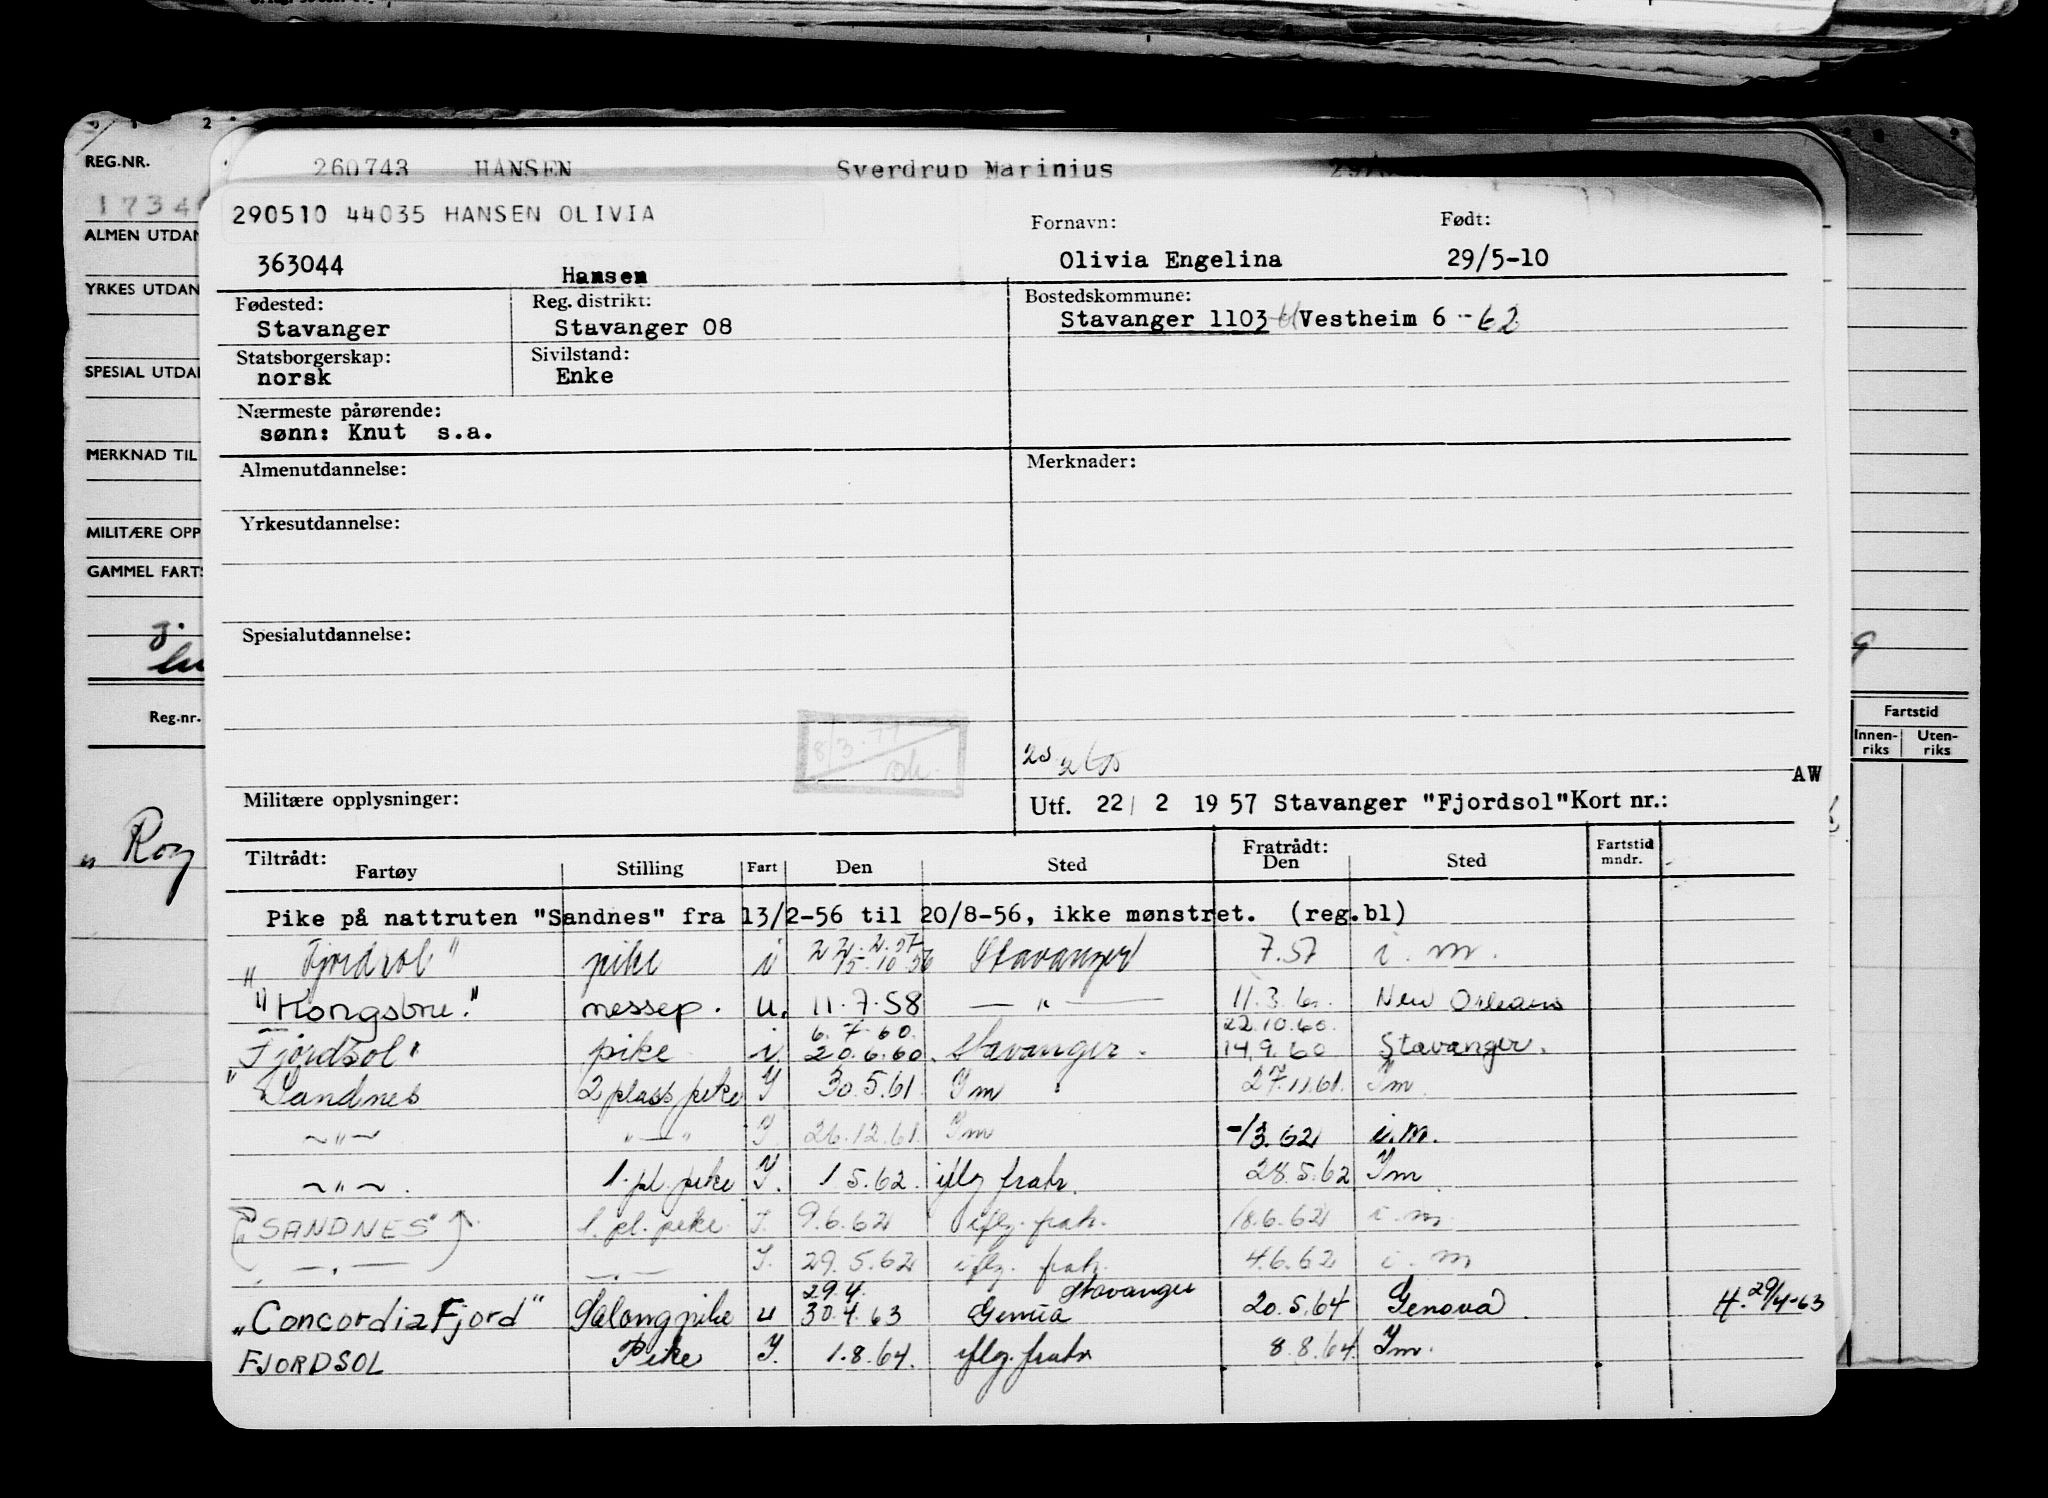 REG.NR.
260743 HANSEN Sverdrup Marinius
1734
290510 44035 HANSEN OLIVIA Fornavn: Født:
ALMEN UTDAN
363044 Hansen Olivia Engelina 29/5-10
YRKES UTDAN
Fødested: Reg. distrikt: Bostedskommune:
Stavanger Stavanger 08 Stavanger 1103 Vestheim 6 -62
Statsborgerskap: Sivilstand:
SPESIAL UTDAN
norsk Enke
Nærmeste pårørende:
sønn: Knut s.a.
MERKNAD TIL
Almenutdannelse: Merknader:
Yrkesutdannelse:
MILITÆRE OPP
GAMMEL FARTS
Spesialutdannelse:
Reg.nr. Fartstid
Innen-riks Uten-riks
8/3.77
AW
Militære opplysninger: Utf. 22/ 2 1957 Stavanger "Fjordsol" Kort nr.:
Tiltrådt: Fratrådt: Fartstid mndr.
Fartøy Stilling Fart Den Sted Den Sted
Pike på nattruten "Sandnes" fra 13/2-56 til 20/8-56, ikke mønstret. (reg.bl)
22.2.57
"Fjordsol" pike i 15.10.56 Stavanger 7.57 i.m.
"Kongsbru." messep. u. 11.7.58 — " — 11.3.6 New Orleans
6.7.60. 22.10.60.
"Fjordsol" pike i 20.6.60. Stavanger. 14.9.60 Stavanger.
"Sandnes 2 plass pike Y 30.5.61 Ym 27.11.61. Ym
~"~ "—" Y. 26.12.61. Ym -/3.62 i.m.
~"~. 1. pl. pike Y. 1 5.62. iflg fratr. 28.5.62 Ym
"SANDNES" 1. pl. pike I. 9.6.62 iflg. fratr. 18.6.62 i.m.
— . — — . — I. 29.5.62 iflg. fratr. 4.6.62 i.m
29.4. Stavanger
"Concordia Fjord" Salongpike u 30.4.63 Genua 20.5.64 Genova. H. 29/4-63
FJORDSOL Pike Y. 1.8.64. iflg. fratr 8.8.64. Ym.